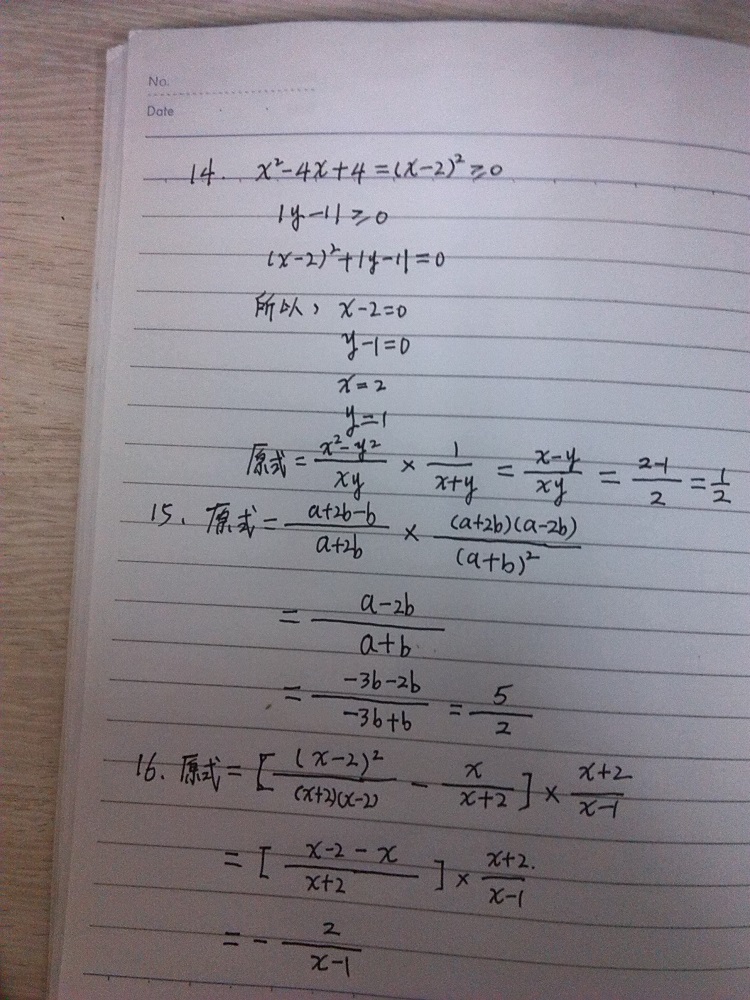 No.
Date
14. x²-4x+4=(x-2)²≥0
|y-1|≥0
(x-2)²+|y-1|=0
所以, x-2=0
y-1=0
x=2
y=1
原式=\frac{x²-y²}{xy}×\frac{1}{x+y}=\frac{x-y}{xy}=\frac{2-1}{2}=\frac{1}{2}
15. 原式=\frac{a+2b-b}{a+2b}×\frac{(a+2b)(a-2b)}{(a+b)²}
=\frac{a-2b}{a+b}
=\frac{-3b-2b}{-3b+b}=\frac{5}{2}
16. 原式=[\frac{(x-2)²}{(x+2)(x-2)}-\frac{x}{x+2}]×\frac{x+2}{x-1}
=[\frac{x-2-x}{x+2}]×\frac{x+2}{x-1}
=-\frac{2}{x-1}